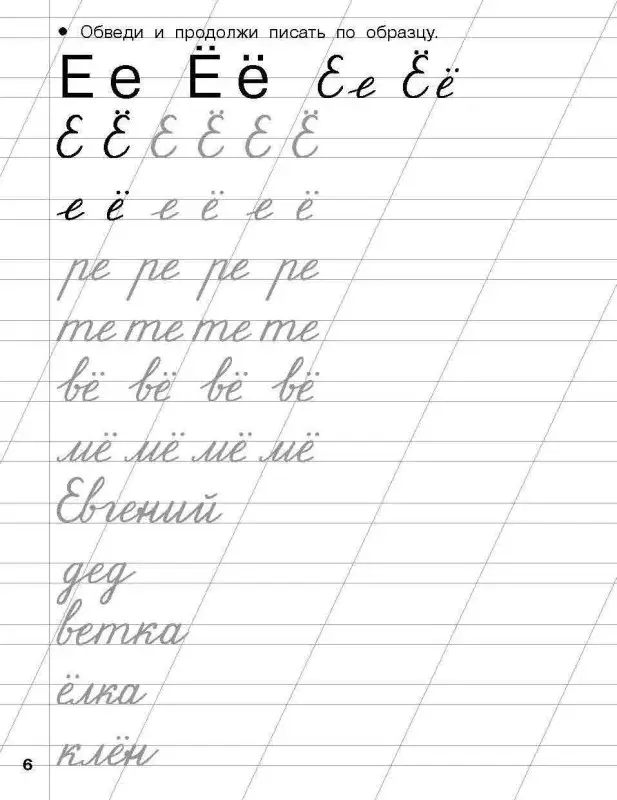 • Обведи и продолжи писать по образцу.
Е е Ё ё Е е Ё ё
Е Ё Е Ё Е Ё
е ё е ё е ё
ре ре ре ре
те те те те
вё вё вё вё
мё мё мё мё
Евгений
дед
ветка
ёлка
клён
6